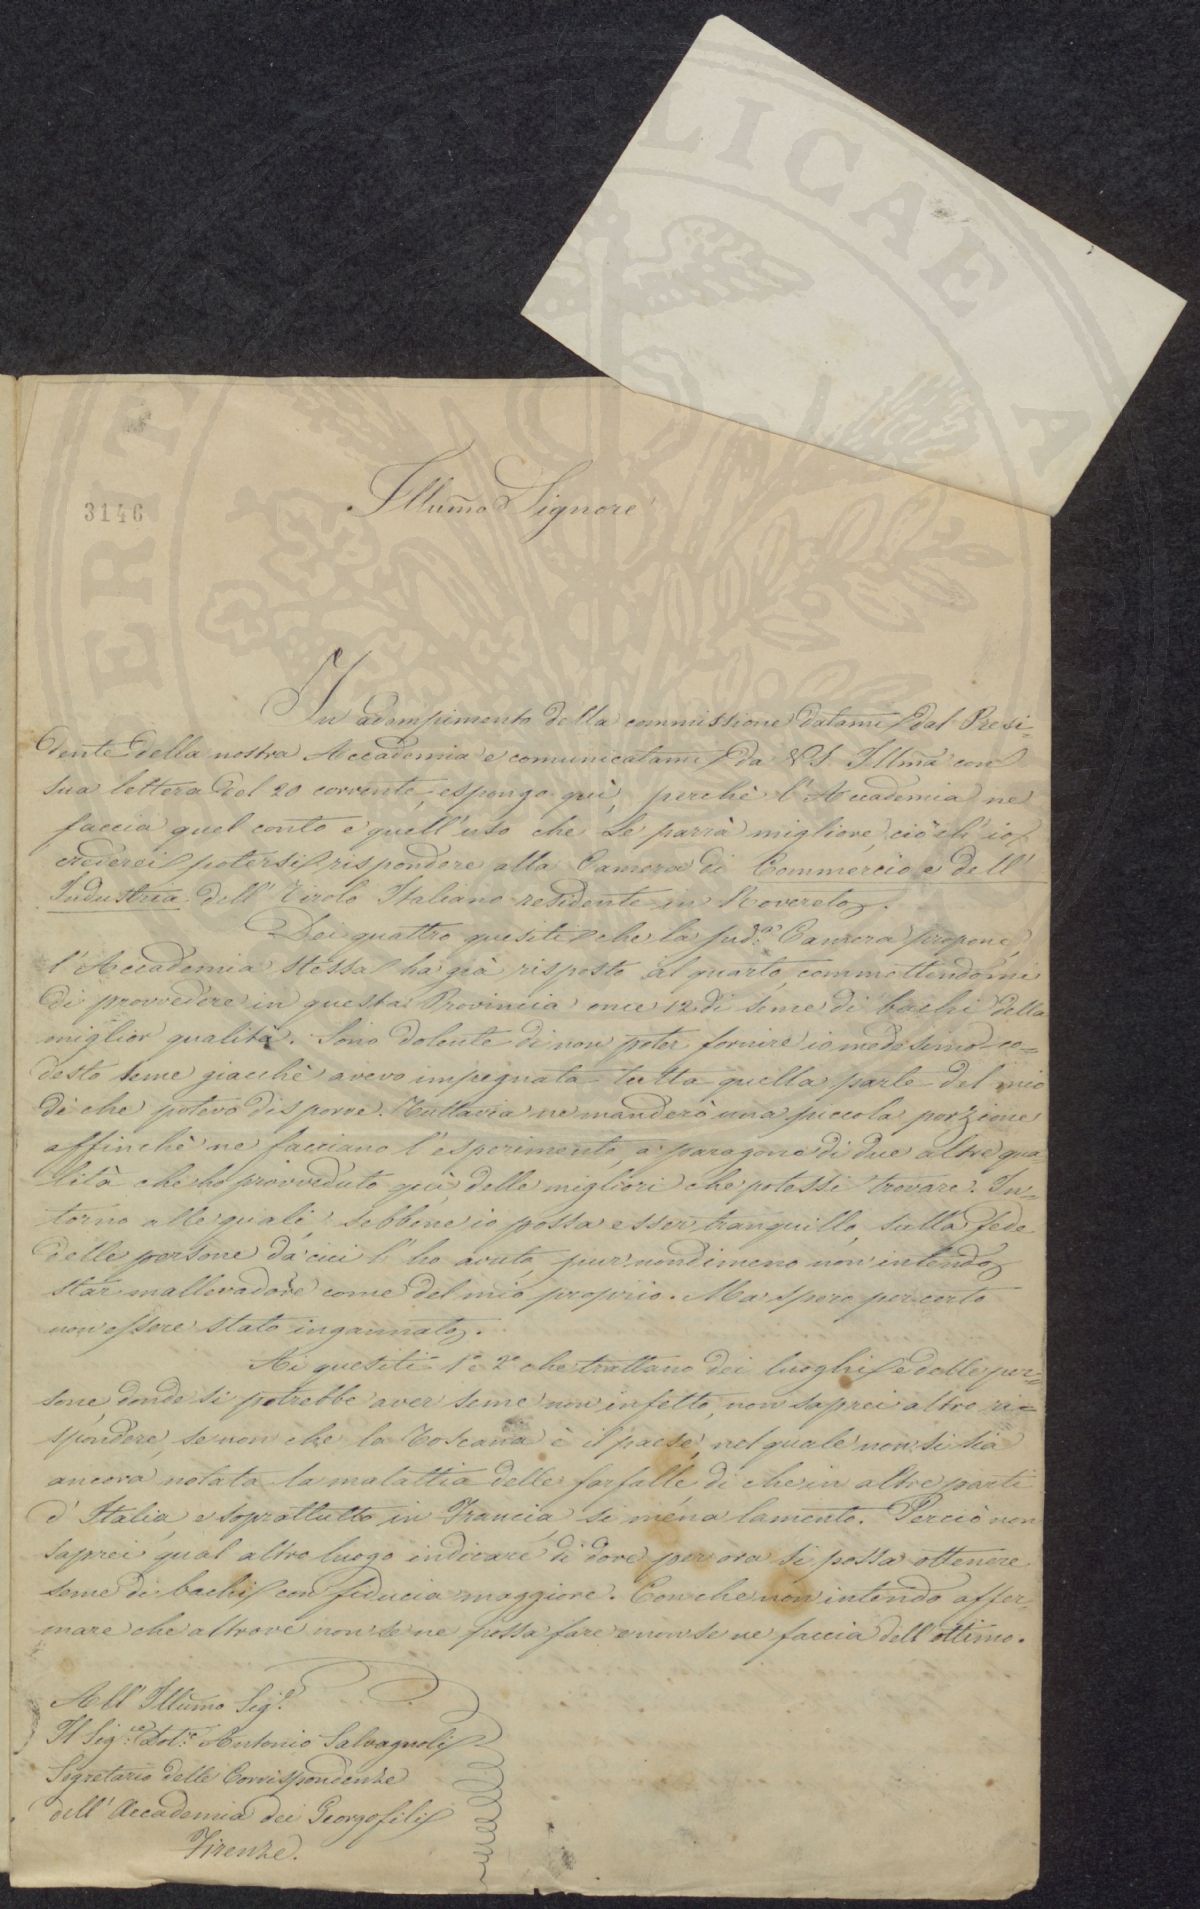 3146
Illum̃o Signore
In adempimento della commissione datami dal Presi=
dente della nostra Accademia e comunicatami da V.S. Illm̃a con
sua lettera del 20 corrente, espongo quì, perchè l'Accademia ne
faccia quel conto e quell'uso che Le parrà migliore, ciò ch'io
crederei potersi rispondere alla Camera di Commercio e dell'
Industria dell'Tirolo Italiano residente in Rovereto.
Dei quattro quesiti che la sud.ª Camera propone,
l'Accademia stessa ha già risposto al quarto, commettendomi
di provvedere in questa Provincia once 12 di seme di bachi della
miglior qualità. Sono dolente di non poter fornire io medesimo co=
desto seme giacchè avevo impegnata tutta quella parte del mio
di che potevo disporre. Tuttavia ne manderò una piccola porzione
affinchè ne facciano l'esperimento, a paragone di due altre qua=
lità che ho provveduto quì, delle migliori che potessi trovare. In=
torno alle quali, sebbene io possa esser tranquillo, sulla fede
delle persone da cui l'ho avuto, pur nondimeno non intendo
star mallevadore come del mio proprio. Ma spero per certo
non essere stato ingannato.
Ai quesiti 1° e 2° che trattano dei luoghi e delle per=
sone, donde si potrebbe aver seme non infetto, non saprei altro ri=
spondere, se non che la Toscana è il paese, nel quale non si sia
ancora notata la malattia delle farfalle, di che in altre parti
d'Italia, e soprattutto in Francia, si mena lamento. Perciò non
saprei qual altro luogo indicare di dove per ora si possa ottenere
seme di bachi con fiducia maggiore. Con che non intendo affer=
mare che altrove non se ne possa fare e non se ne faccia dell'ottimo.
All'Illum̃o Sig.r
Il Sig.re Dot.e Antonio Salvagnoli
Segretario delle Corrispondenze
dell'Accademia dei Georgofili
Firenze.